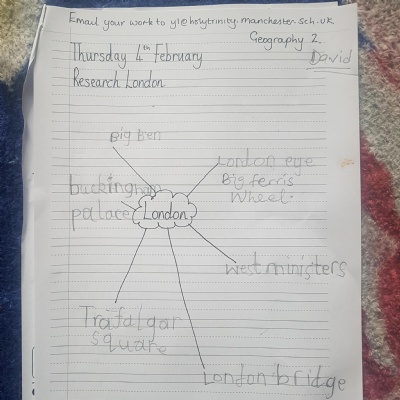 Email your work to y1@holytrinity.manchester.sch.uk
Geography 2.
David
Thursday 4th February
Research London
Big Ben
London eye
Big ferris
Wheel.
buckingham
palace
London
westministers
Trafalgar
square
London bridge